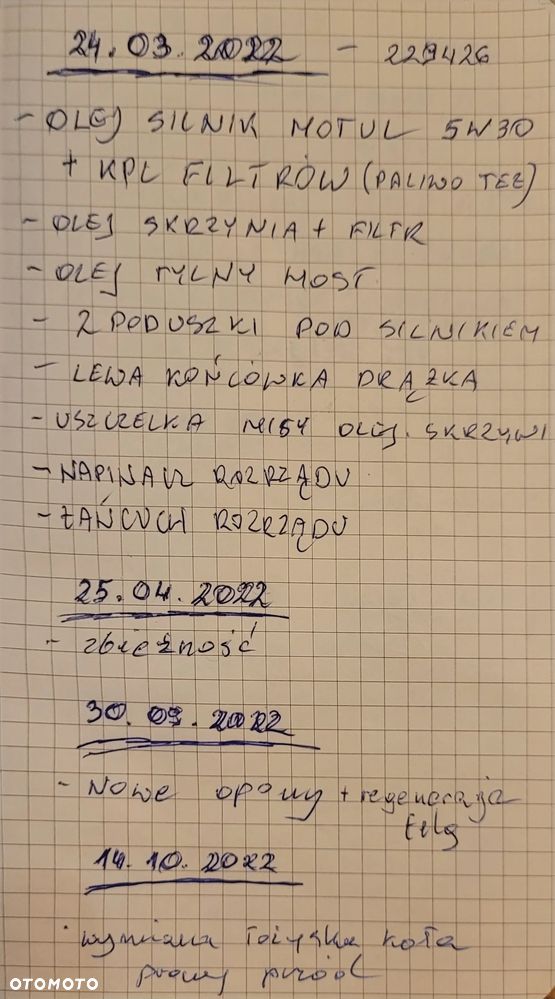 24.03.2022 - 229426
- OLEJ SILNIK MOTUL 5W30
+ KPL FILTRÓW (PALIWO TEŻ)
- OLEJ SKRZYNIA + FILTR
- OLEJ TYLNY MOST
- 2 PODUSZKI POD SILNIKIEM
- LEWA KOŃCÓWKA DRĄŻKA
- USZCZELKA MISY OLEJ. SKRZYNI
- NAPINACZ ROZRZĄDU
- ŁAŃCUCH ROZRZĄDU
25.04.2022
- zbieżność
30.09.2022
- Nowe opony + regeneracja
felg
14.10.2022
· wymiana łożyska koła
prawy przód
OTOMOTO